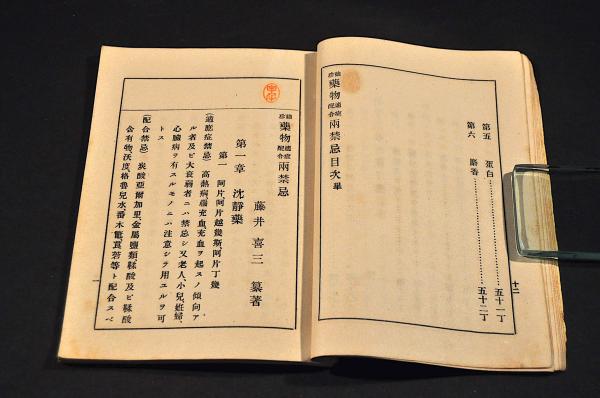 第五 蛋白…………五十一丁
第六 麝香…………五十二丁
袖珍藥物適症配合兩禁忌目次畢
十二
袖珍藥物適症配合兩禁忌
藤井喜三 纂著
第一章 沈靜藥
第一 阿片阿片越幾斯阿片丁幾
(適應症禁忌) 高熱病腦充血、充血ヲ起スノ傾向ア
ル者及ビ大衰弱者ニハ禁忌シ又老人、小兒、妊婦、
心臟病ヲ有スルモノニハ注意シテ用ユルヲ可
トス
(配合禁忌) 炭酸亞爾加里、金屬鹽類鞣酸及ビ鞣酸
含有物、沃度、格魯兒水番木鼈莨菪等ト配合スベ
一